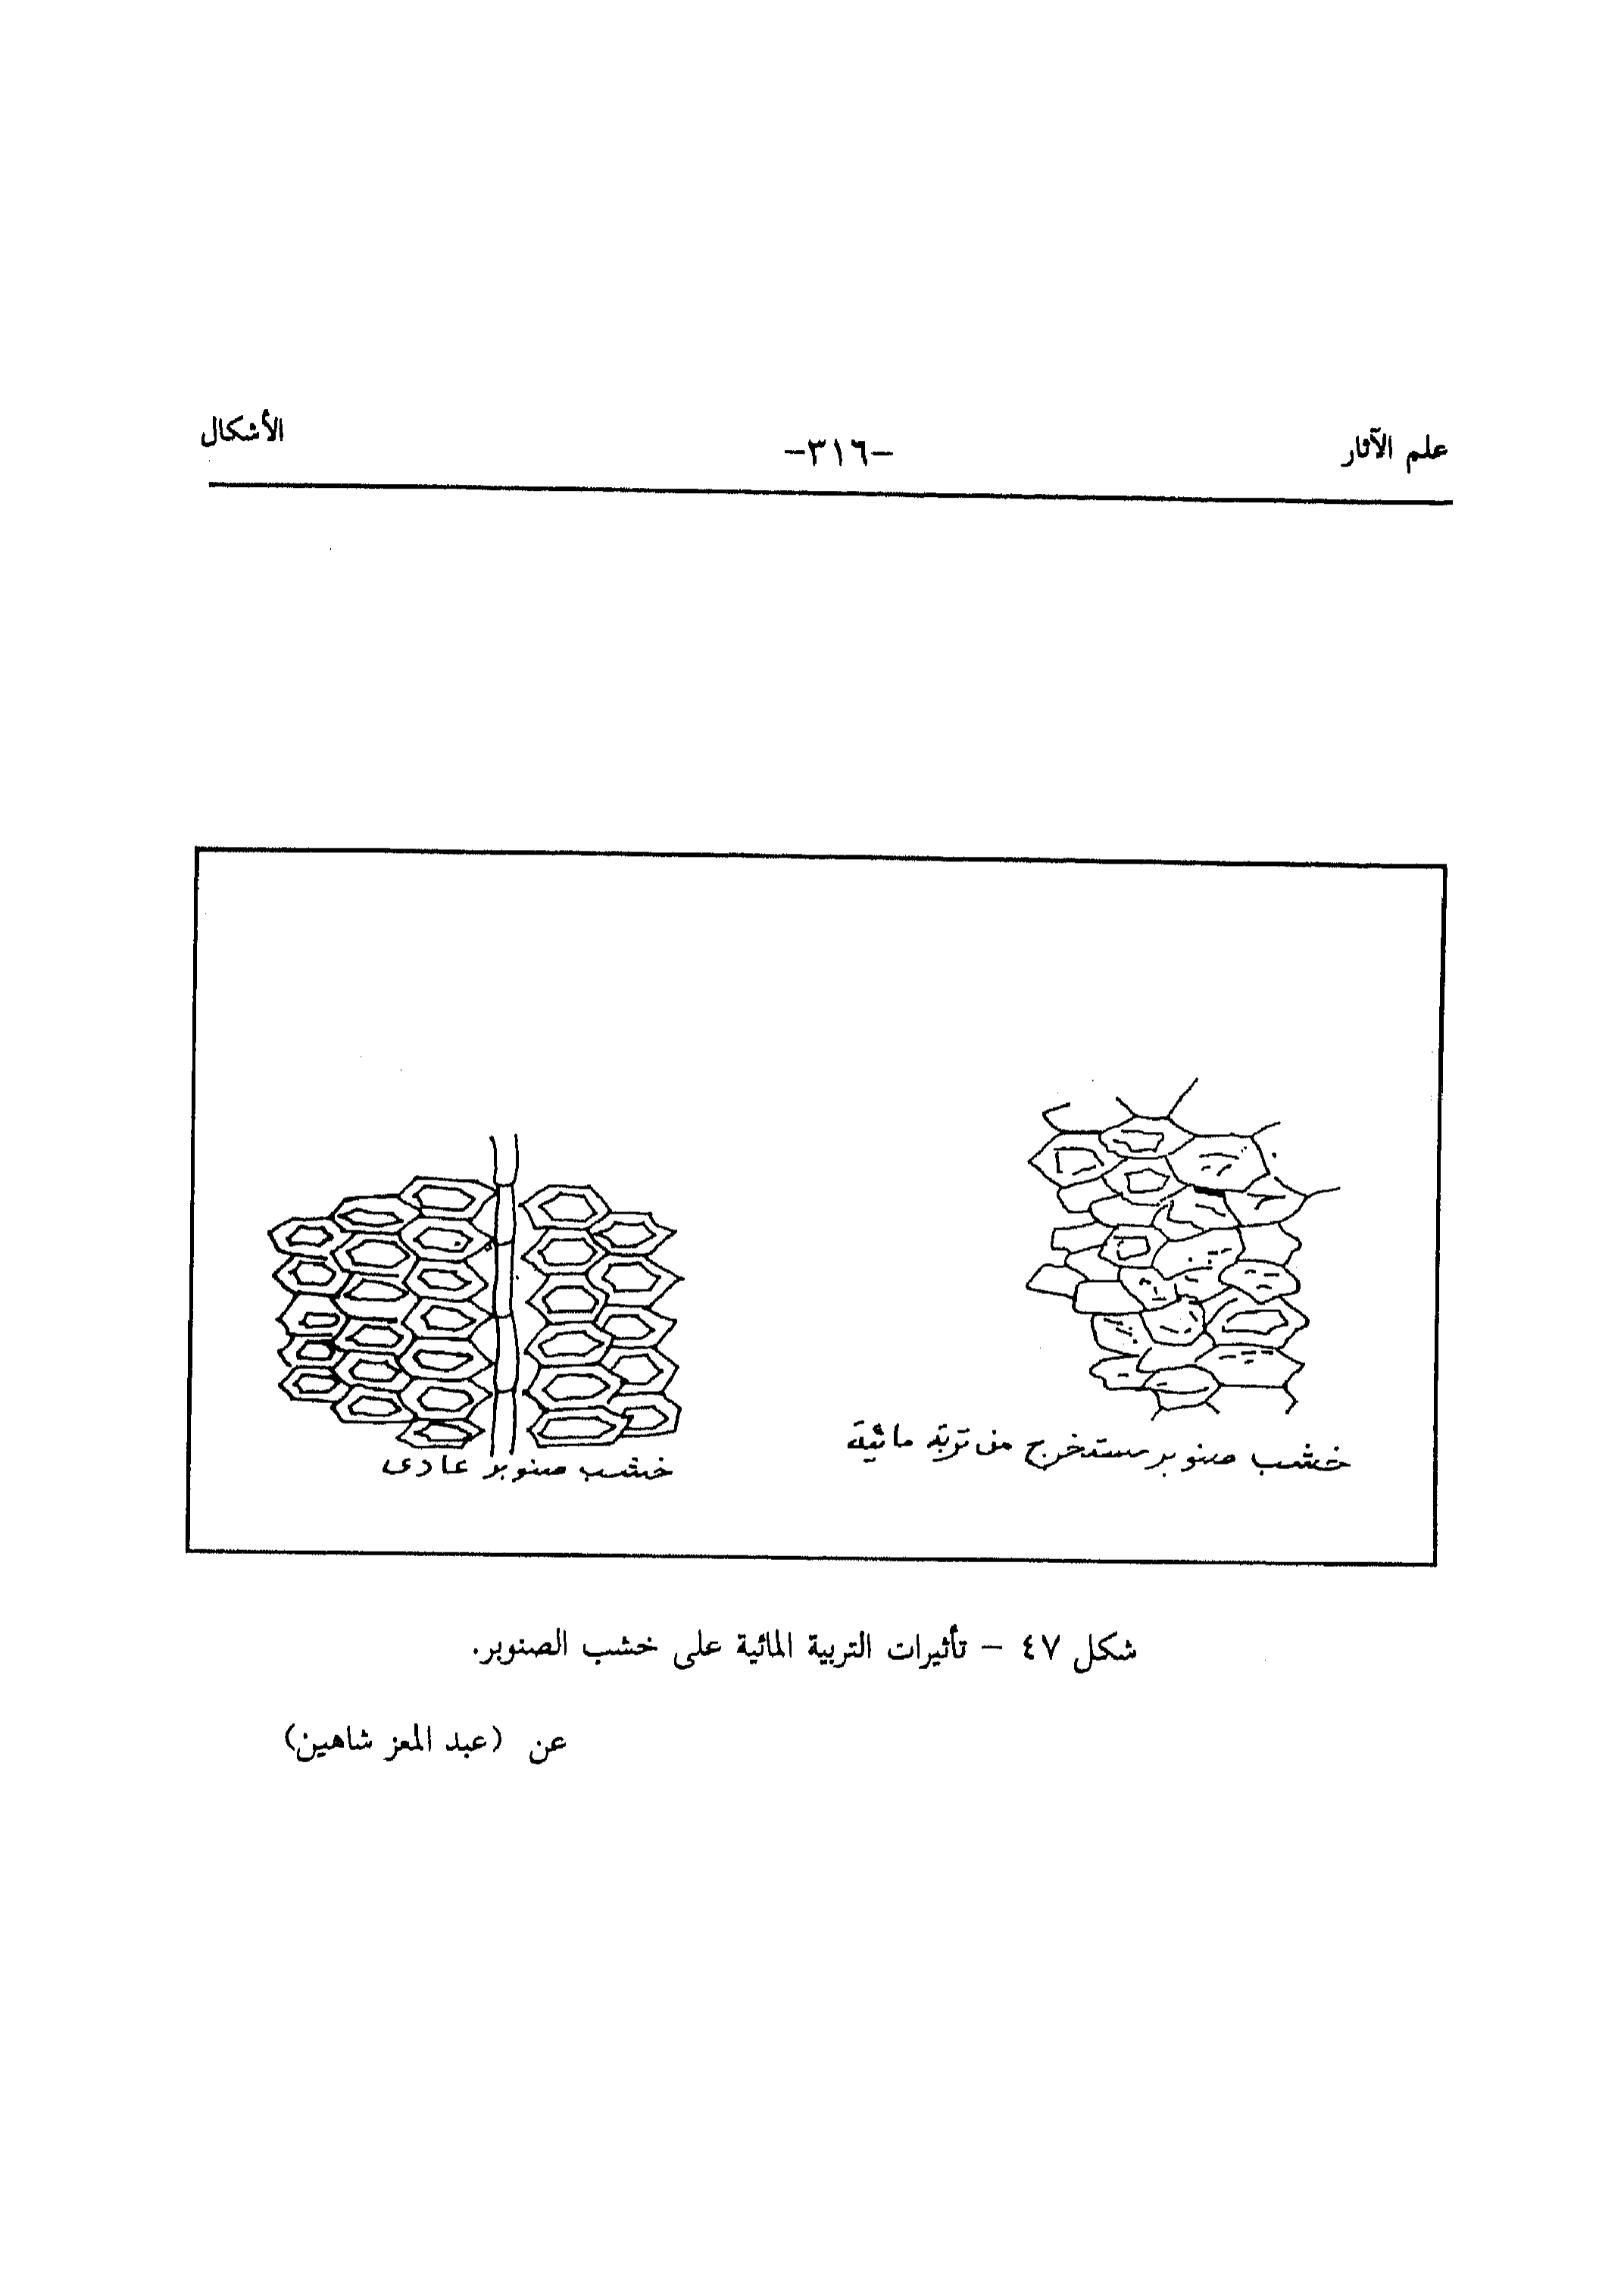 علم الآثار -٣١٦- الأشكال
خشب صنوبر مستخرج من تربة مائية
خشب صنوبر عادى
شكل ٤٧ – تأثيرات التربية المائية على خشب الصنوبر.
عن (عبد المعز شاهين)